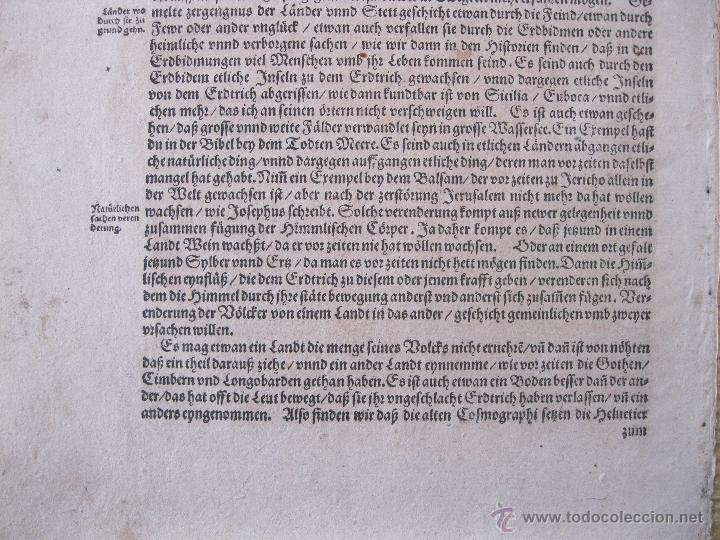 Länder wo
durch sie zu
grund gehn.
melte zergengnus der Länder vnnd Stett geschicht etwan durch die Feind/etwan durch
Fewr oder ander vnglück / etwan auch verfallen sie durch die Erdbidmen oder andere
heimliche vnnd verborgene sachen / wie wir dann in den Historien finden/ daß in den
Erdbidmungen viel Menschen vmb jhr Leben kommen seind. Es seind auch durch den
Erdbidem etliche Inseln zu dem Erdtrich gewachsen / vnnd dargegen etliche Inseln
von dem Erdtrich abgerissen / wie dann kundtbar ist von Sicilia / Euboca / vnnd etli-
chen mehr / das ich an seinen örtern nicht verschweigen will. Es ist auch etwan gesche-
hen / daß grosse vnnd weite Fälder verwandlet seyn in grosse Wassersee. Ein Exempel hast
du in der Bibel bey dem Todten Meere. Es seind auch in etlichen Ländern abgangen etli-
che natürliche ding/vnnd dargegen auffgangen etliche ding/ deren man vor zeiten daselbst
mangel hat gehabt. Nim̄ ein Exempel bey dem Balsam/ der vor zeiten zu Jericho allein in
der Welt gewachsen ist / aber nach der zerstörung Jerusalem nicht mehr da hat wöllen
Natürlichen
sachen veren
derung.
wachsen / wie Josephus schreibt. Solche verenderung kompt auß newer gelegenheit vnnd
zusammen fügung der Himmlischen Cörper. Ja daher kompt es / daß jetzund in einem
Landt Wein wachßt/ da er vor zeiten nie hat wöllen wachsen. Oder an einem ort gefalt
jetzund Sylber vnnd Ertz / da man es vor zeiten nicht hett mögen finden. Dann die Him̄-
lischen eynflüß / die dem Erdtrich zu diesem oder jenem krafft geben / verenderen sich nach
dem die Himmel durch jhre stäte bewegung anderst vnd anderst sich zusam̄en fügen. Ver-
enderung der Völcker von einem Landt in das ander / geschicht gemeinlichen vmb zweyer
vrsachen willen.
Es mag etwan ein Landt die menge seines Volcks nicht ernehrē/vn̄ dan̄ ist von nöhten
daß ein theil darauß ziehe / vnnd ein ander Landt eynnemme / wie vor zeiten die Gothen/
Cimbern vnd Longobarden gethan haben. Es ist auch etwan ein Boden besser dan̄ der an-
der/das hat offt die Leut bewegt/ daß sie jhr vngeschlacht Erdtrich haben verlassen/ vn̄ ein
anders eyngenommen. Also finden wir daß die alten Cosmographi setzen die Heluetier
zum
© www.todocoleccion.net